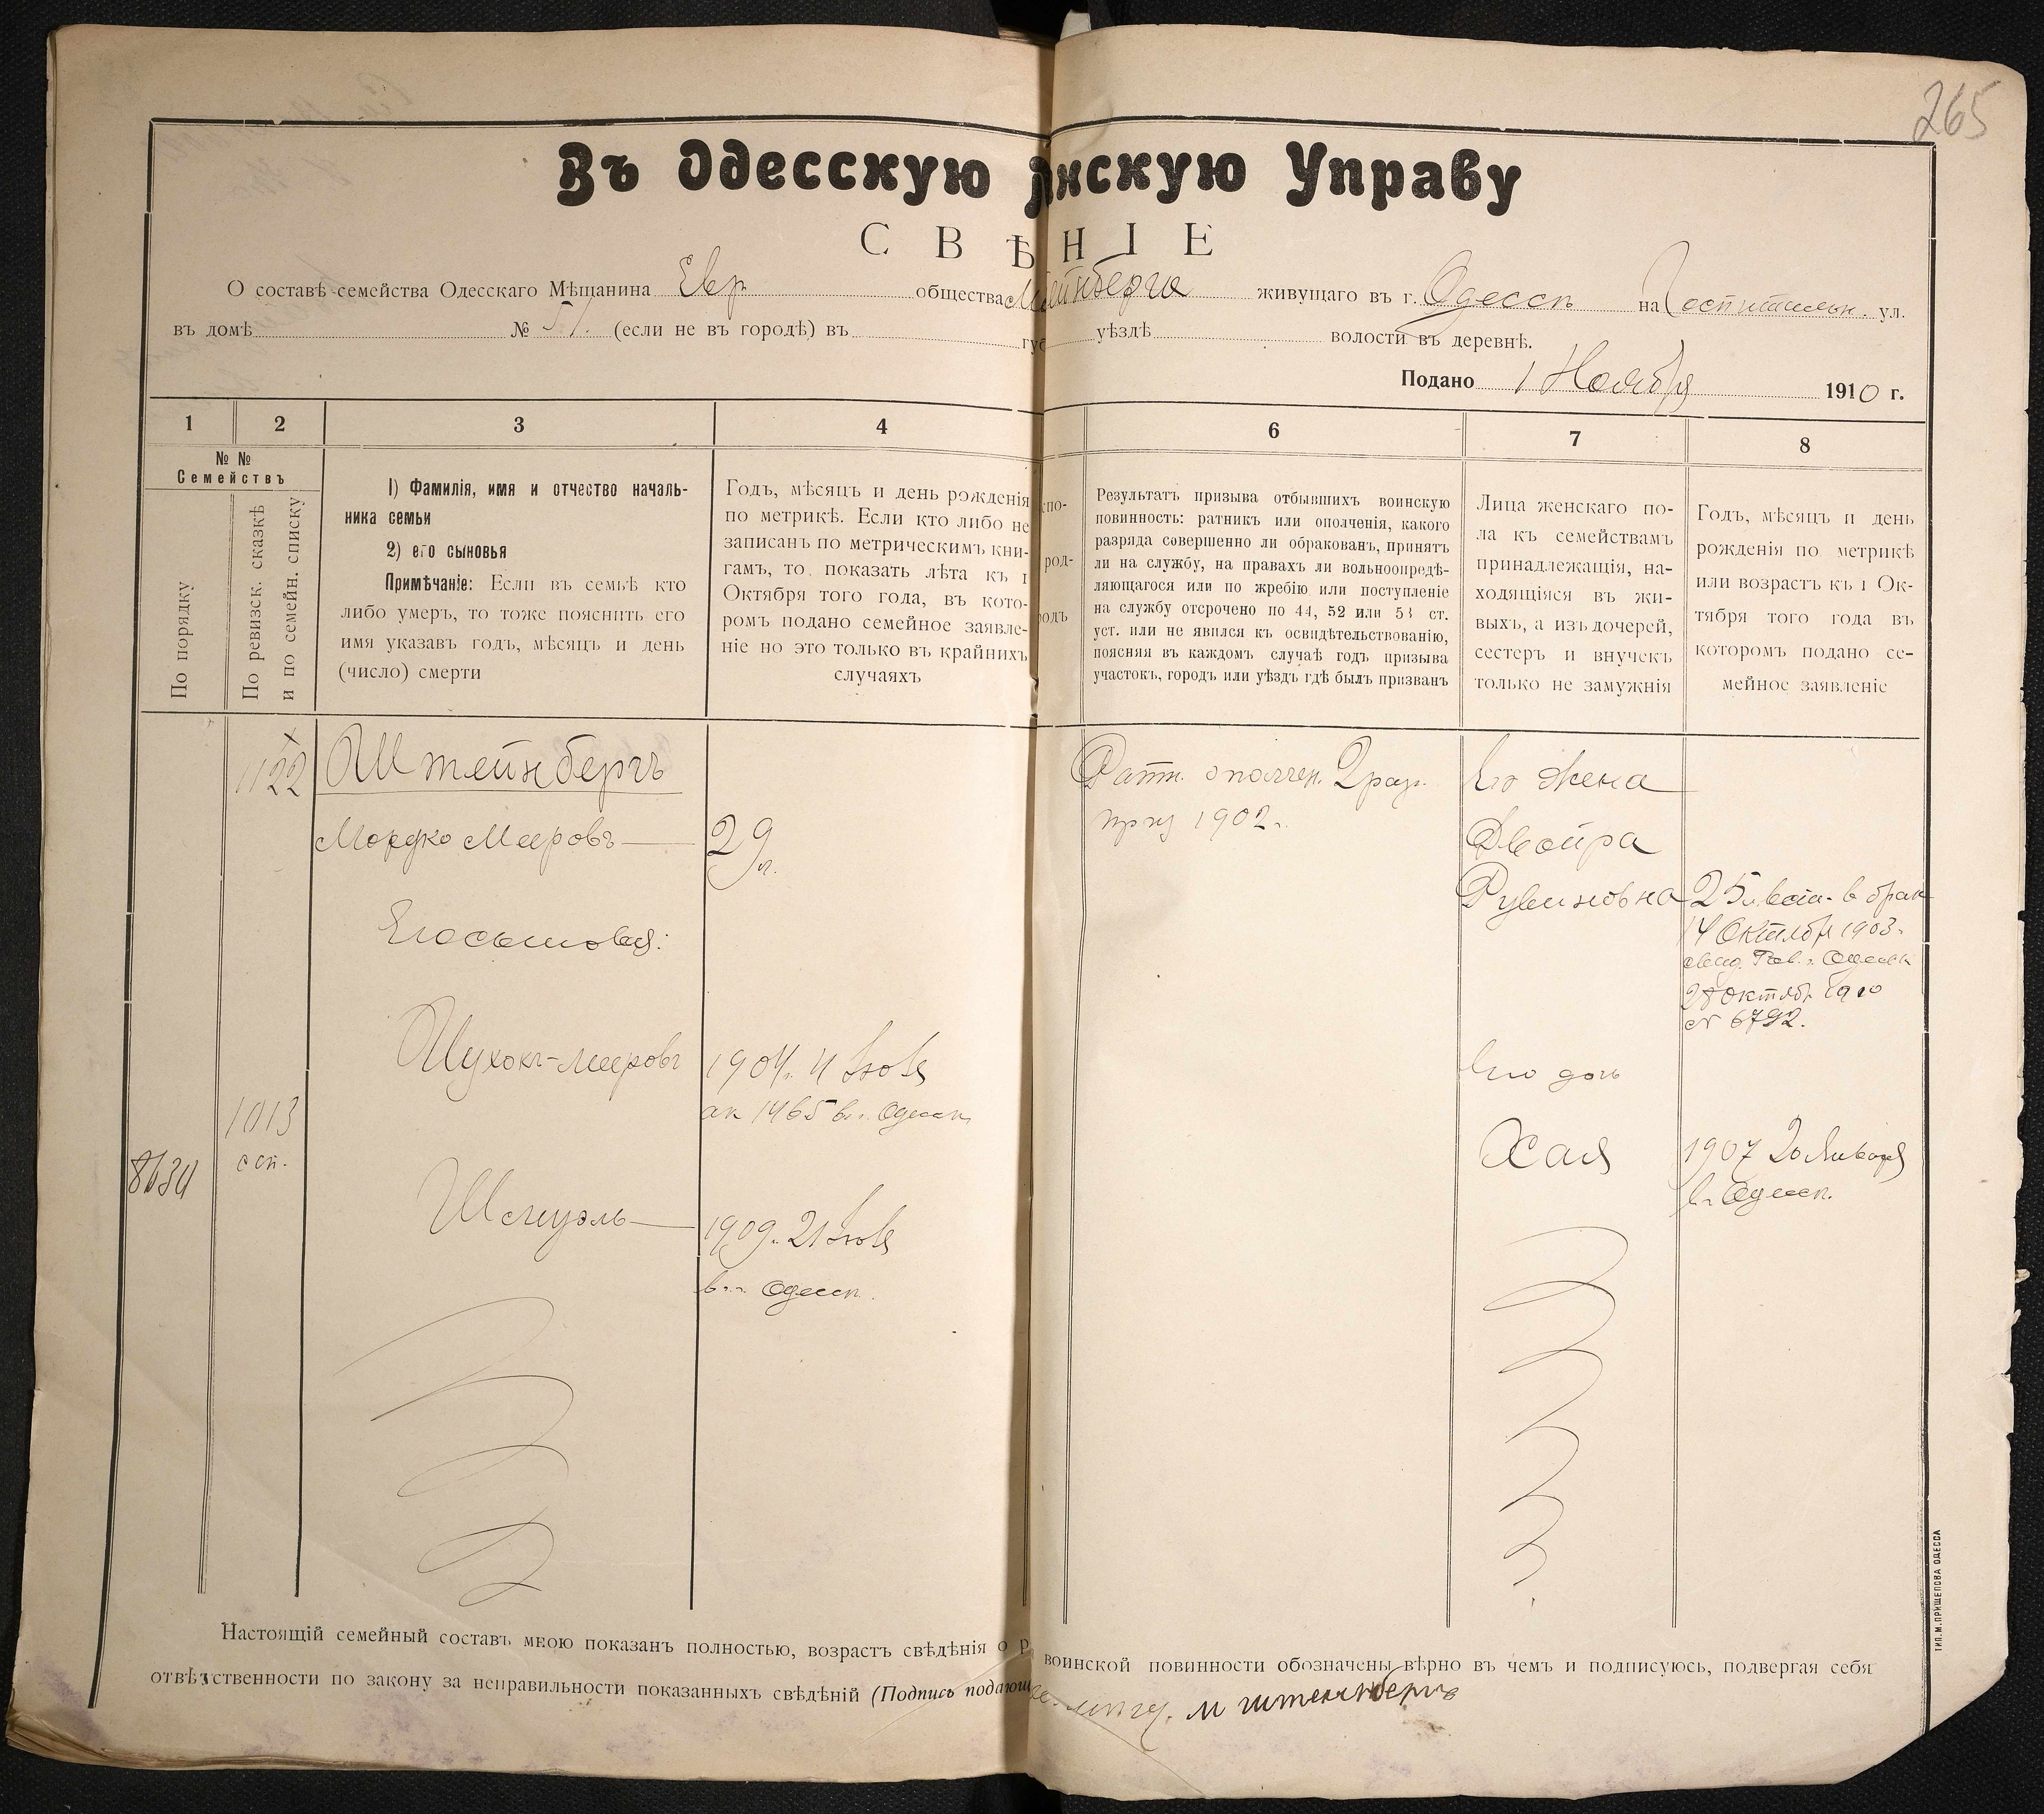 265
Въ Одесскую нскую Управу
СВѢНІЕ
О составѣ семейства Одесскаго Мѣщанина Евр общества йнберга живущаго въ г. Одессѣ на Госпитальн. ул.
въ домѣ № 51. (если не въ городѣ) въ губ уѣздѣ волости въ деревнѣ.
Подано 1 Ноября 1910 г.
1 2 3 4 6 7 8
№ №
Семействъ
По порядку
По ревизск. сказкѣ
и по семейн. списку
1) Фамилія, имя и отчество началь-
ника семьи
2) его сыновья
Примѣчаніе: Если въ семьѣ кто
либо умеръ, то тоже пояснить его
имя указавъ годъ, мѣсяцъ и день
(число) смерти
Годъ, мѣсяцъ и день рожденія
по метрикѣ. Если кто либо не
записанъ по метрическимъ кни-
гамъ, то показать лѣта къ 1
Октября того года, въ кото-
ромъ подано семейное заявле-
ніе но это только въ крайнихъ
случаяхъ
спо-
род-
родъ
Результатъ призыва отбывшихъ воинскую
повинность: ратникъ или ополченія, какого
разряда совершенно ли обракованъ, принятъ
ли на службу, на правахъ ли вольноопредѣ-
ляющагося или по жребію или поступленіе
на службу отсрочено по 44, 52 или 53 ст.
уст. или не явился къ освидѣтельствованію,
поясняя въ каждомъ случаѣ годъ призыва
участокъ, городъ или уѣздъ гдѣ былъ призванъ
Лица женскаго по-
ла къ семействамъ
принадлежащія, на-
ходящіяся въ жи-
выхъ, а изъ дочерей,
сестеръ и внучекъ
только не замужнія
Годъ, мѣсяцъ и день
рожденія по метрикѣ
или возрастъ къ 1 Ок-
тября того года въ
которомъ подано се-
мейное заявленіе
1122
Штейнбергъ
Мордко Мееровъ
29 л.
Ратн. ополчен. 2 раз.
приз 1902 г.
Его жена
Двойра
Рувиновна
25 л. в брак
14 Октября 1903 г.
свид. Рав. г. Одессы
28 октября 1910
№ 6792.
Его сыновья:
Мееровъ
1904 г. 4 Іюля
ак 1465 в г. Одессѣ
Его дочь
1013
8634
Хая
1907 20 Января
в г. Одессѣ.
Шмуэль
1909 г. 21 Іюля
в г. Одессѣ.
Настоящій семейный составъ мною показанъ полностью, возрастъ свѣдѣнія о воинской повинности обозначены вѣрно въ чемъ и подписуюсь, подвергая себя
отвѣтственности по закону за неправильности показанныхъ свѣдѣній (Подпись подающ М Штейнбергъ
ТИП. М. ПРИЩЕПОВА ОДЕССА